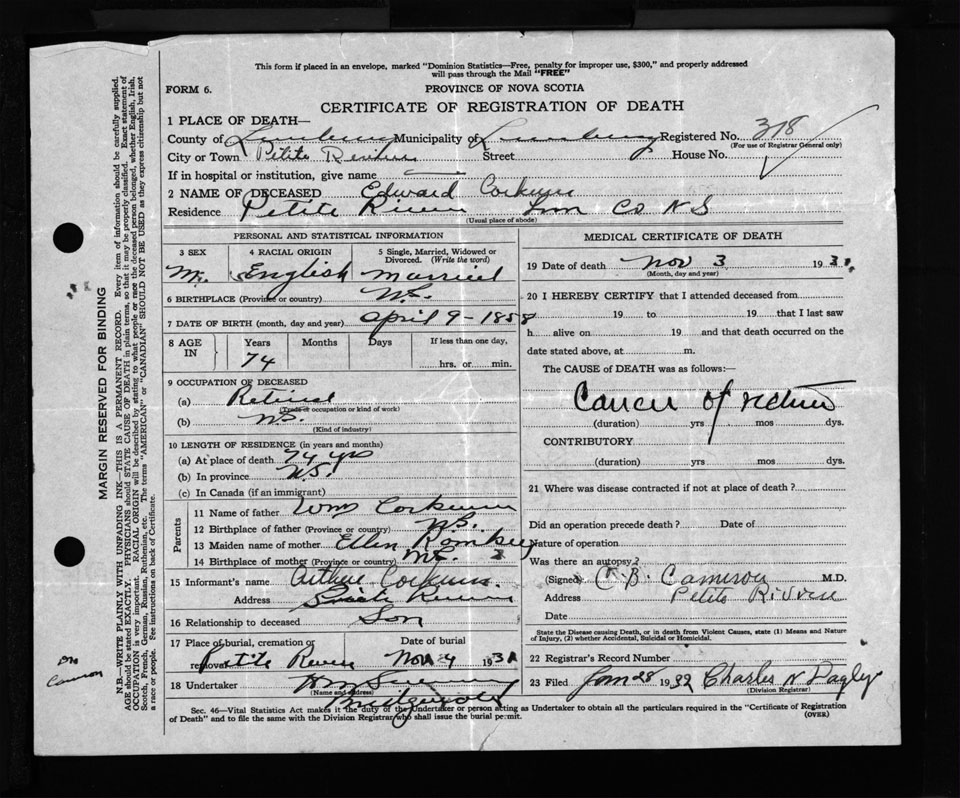 This form if placed in an envelope, marked "Dominion Statistics—Free, penalty for improper use, $300," and properly addressed
will pass through the Mail "FREE"
FORM 6.
PROVINCE OF NOVA SCOTIA
CERTIFICATE OF REGISTRATION OF DEATH
1 PLACE OF DEATH—
County of Lunenburg Municipality of Lunenburg Registered No. 318
(For use of Registrar General only)
City or Town Petite Riviere Street House No.
If in hospital or institution, give name
2 NAME OF DECEASED Edward Corkum
Residence Petite Riviere Lun Co N S
(Usual place of abode)
PERSONAL AND STATISTICAL INFORMATION
3 SEX 4 RACIAL ORIGIN 5 Single, Married, Widowed or Divorced. (Write the word)
M. English Married
6 BIRTHPLACE (Province or country) N.S.
7 DATE OF BIRTH (month, day and year) April 9-1858
8 AGE IN Years Months Days If less than one day,
74 hrs. or min.
9 OCCUPATION OF DECEASED
(a) Retired
(Trade or occupation or kind of work)
(b) N.S.
(Kind of industry)
10 LENGTH OF RESIDENCE (in years and months)
(a) At place of death 74 yrs
(b) In province N.S.
(c) In Canada (if an immigrant)
Parents
11 Name of father Wm Corkum
12 Birthplace of father (Province or country) N.S.
13 Maiden name of mother Ellen Romkey
14 Birthplace of mother (Province or country) N.S.
15 Informant's name Arthur Corkum.
Address Petite Riviere
16 Relationship to deceased Son
17 Place of burial, cremation or removal Petite Riviere Date of burial Nov 4 1931
18 Undertaker
(Name and address)
MEDICAL CERTIFICATE OF DEATH
19 Date of death Nov 3 1931
(Month, day and year)
20 I HEREBY CERTIFY that I attended deceased from
19 to 19 that I last saw
h alive on 19 and that death occurred on
date stated above, at m.
The CAUSE of DEATH was as follows:—
Cancer of rectum
(duration) yrs mos dys.
CONTRIBUTORY
(duration) yrs mos dys.
21 Where was disease contracted if not at place of death?
Did an operation precede death? Date of
Nature of operation
Was there an autopsy?
(Signed) C. B. Cameron M.D.
Address Petite Riviere
Date
State the Disease causing Death, or in death from Violent Causes, state (1) Means and Nature
of Injury, (2) whether Accidental, Suicidal or Homicidal.
22 Registrar's Record Number
23 Filed Jan 28 1932 Charles N Dagley
(Division Registrar)
Sec. 46—Vital Statistics Act makes it the duty of the Undertaker or person acting as Undertaker to obtain all the particulars required in the "Certificate of Registration
of Death" and to file the same with the Division Registrar who shall issue the burial permit.
(OVER)
MARGIN RESERVED FOR BINDING
N.B.—WRITE PLAINLY WITH UNFADING INK—THIS IS A PERMANENT RECORD. Every item of information should be carefully supplied.
AGE should be stated EXACTLY. PHYSICIANS should STATE CAUSE OF DEATH in plain terms, so that it may be properly classified. Exact statement of
OCCUPATION is very important. RACIAL ORIGIN will be described by stating to what people or race the deceased person belonged, whether English, Irish,
Scotch, French, German, Russian, Ruthenian, etc. The terms "AMERICAN" or "CANADIAN" SHOULD NOT BE USED as they express citizenship but not
a race or people. See instructions on back of Certificate.